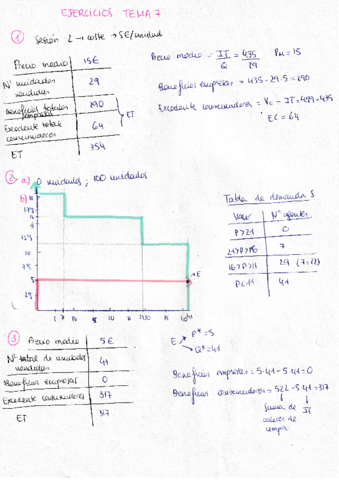 EJERCICIOS TEMA 7
① Sesión 2 → coste → 5€/unidad
Precio medio 15€
Nº unidades vendidas 29
Beneficios totales empresas 290
Excedente total consumidores 64
ET
ET 354
Precio medio = IT/Q = 435/29 PM = 15
Beneficios empresas = 435 - 29·5 = 290
Excedente consumidores = Vc - IT = 499 - 435
EC = 64
② a) 0 unidades, 100 unidades
b)
E
Tabla de demanda S
Valor Nº agentes
P>21 0
21>P>16 7
16>P>11 29 (7+22)
P<11 41
③
Precio medio 5€
Nº total de unidades vendidas 41
Beneficios empresas 0
Excedente consumidores 317
ET 317
E P* = 5
Q* = 41
Beneficios empresas = 5·41 - 5·41 = 0
Beneficios consumidores = 522 - 5·41 = 317
Suma de valores de compra
IT